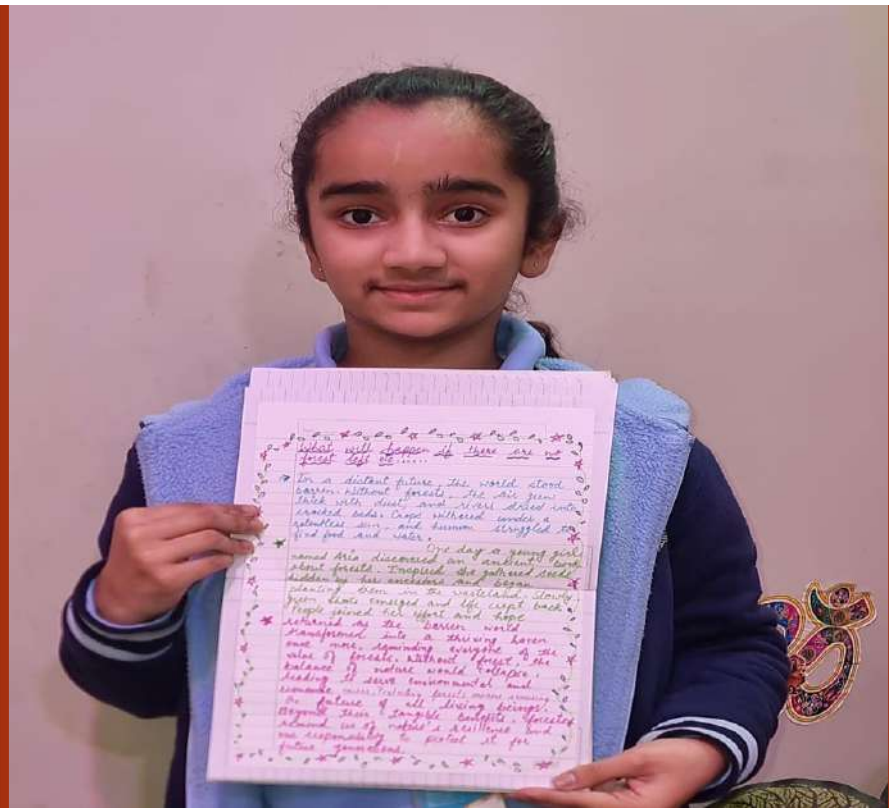 What will happen if there are no
forest left etc......
In a distant future, the world stood
barren. Without forests, the air grew
thick with dust, and rivers dried into
cracked beds. Crops withered under a
relentless sun, and human struggled to
find food and water.
One day a young girl
named Aria discovered an ancient book
about forests. Inspired she gathered seeds
hidden by her ancestors and began
planting them in the wasteland. Slowly
green shoots emerged and life crept back
People joined her effort and hope
returned as the barren world
transformed into a thriving haven
once more, reminding everyone of the
value of forests. Without forest, the
balance of nature would collapse,
leading to serve environmental and
economic forests means
the future of all living beings.
Beyond their tangible benefits, forests
remind us of nature's resilience and
our responsibility to protect it for
future generations.
ॐ